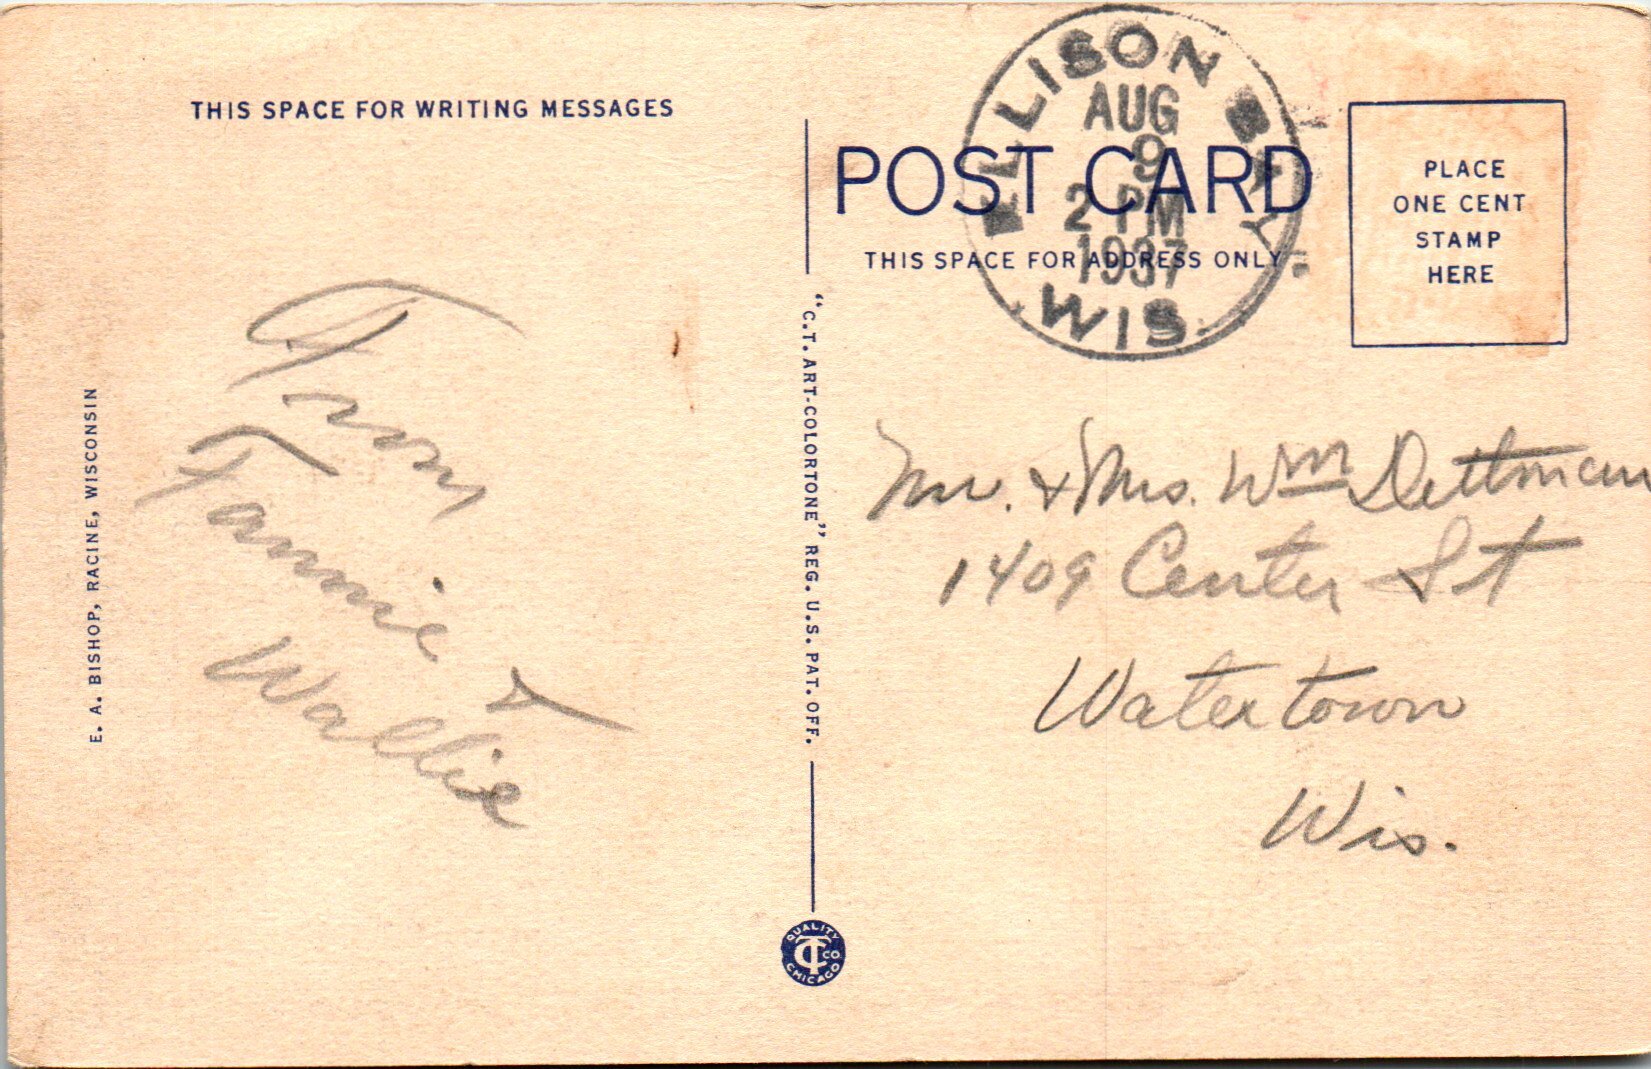 THIS SPACE FOR WRITING MESSAGES
E. A. BISHOP, RACINE, WISCONSIN
From
Fannie &
Wallie
"C.T. ART-COLORTONE" REG. U.S. PAT. OFF.
QUALITY
CT CO
CHICAGO
ELLISON BAY.
AUG
9
2 PM
1937
WIS.
POST CARD
THIS SPACE FOR ADDRESS ONLY
PLACE
ONE CENT
STAMP
HERE
Mr. & Mrs. Wm Dettman
1409 Center St
Watertown
Wis.